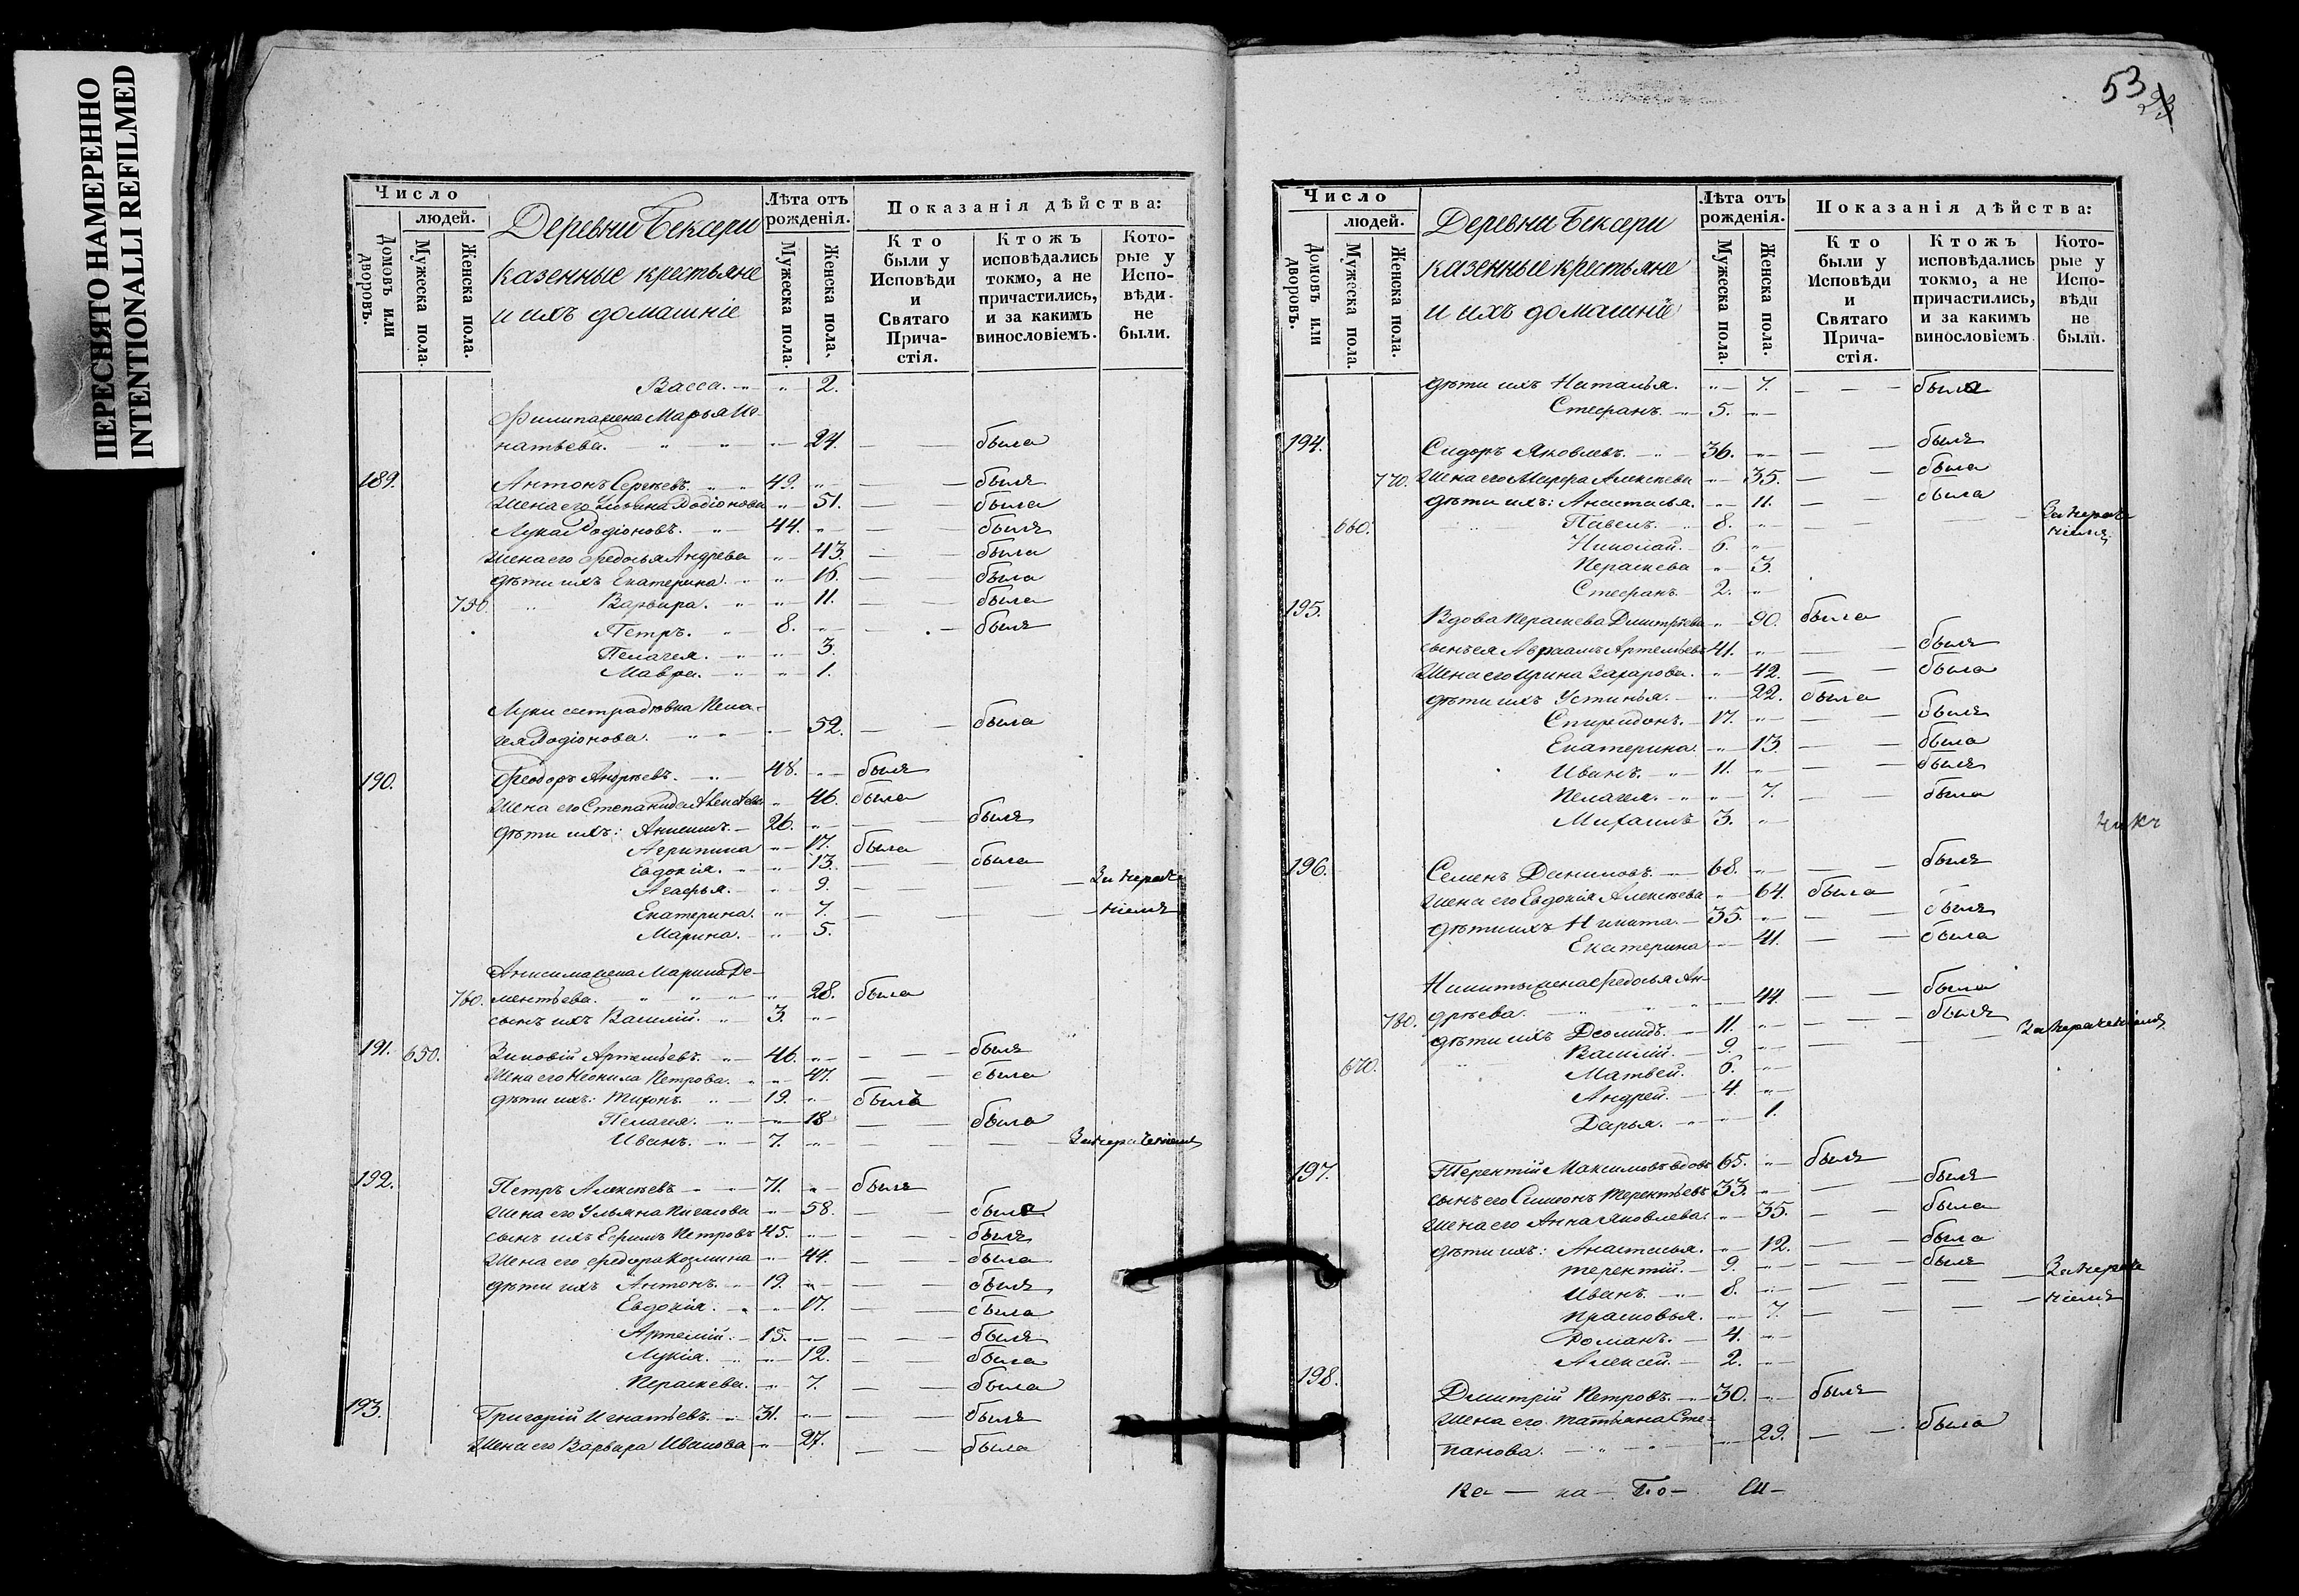 ПЕРЕСНЯТО НАМЕРЕННО
INTENTIONALLI REFILMED
Число
людей.
Домовъ или дворовъ.
Мужеска пола.
Женска пола.
Деревни Бексери
казенные крестьяне
и ихъ домашніе
Лѣта отъ рожденія.
Мужеска пола.
Женска пола.
Показанія дѣйства:
Кто были у Исповѣди и Святаго Прича-стія.
Ктожъ исповѣдались токмо, а не причастились, и за какимъ винословіемъ.
Кото-рые у Испо-вѣди не были.
Васса. 2.
Филипа жена Марья Иг-
натьева. 24. была
189. Антонъ Сергѣевъ. 49. былъ
Жена его Родіонова 51. была
Лука Родіоновъ. 44. былъ
Жена его Федосья Андрева 43. была
дѣти ихъ Екатерина. 16. была
750. Варвара. 11. была
Петръ. 8. былъ
Пелагея. 3.
Мавра. 1.
Луки сестра дѣвка Пела-
гея Родіонова. 52. была
190. Феодоръ Андреевъ. 48. былъ
Жена его Степанида 46. была
дѣти ихъ: Анисимъ. 26. былъ
Агрипина 17. была
Евдокія. 13. была
Агафья. 9. За нерач-
Екатерина. 7. ніемъ
Марина. 5.
Анисима жена Марина Де-
760. ментьева. 28. была
сынъ ихъ Василій. 3.
191. 650. Зиновій Артемьевъ. 46. былъ
Жена его Неонила Петрова. 47. была
дѣти ихъ: Тихонъ. 19. былъ
Пелагея. 18 была
Иванъ. 7. За нераченіемъ
192. Петръ Алексѣевъ 71. былъ
Жена его Ульяна 58. была
сынъ ихъ Ефимъ Петровъ 45. былъ
Жена его Федора Козмина 44. была
дѣти ихъ Антонъ. 19. былъ
Евдокія. 17. была
Артемій. 15. былъ
Лукія. 12. была
Параскева. 7. была
193. Григорій Игнатьевъ. 31. былъ
Жена его Варвара Иванова 27. была
53
23
Число
людей.
Домовъ или дворовъ.
Мужеска пола.
Женска пола.
Деревни Бексери
казенные крестьяне
и ихъ домашніе
Лѣта отъ рожденія.
Мужеска пола.
Женска пола.
Показанія дѣйства:
Кто были у Исповѣди и Святаго Прича-стія.
Ктожъ исповѣдались токмо, а не причастились, и за какимъ винословіемъ.
Кото-рые у Испо-вѣди не были.
дѣти ихъ Наталья. 7. была
Стефанъ. 5.
194. Сидоръ Яковлевъ. 36. былъ
770. Жена его Марфа Алексѣева 35. была
дѣти ихъ: Анастасья. 11. была
660. Павелъ. 8. За нераче-
Николай. 6. ніемъ
Параскева 3.
Стефанъ 2.
195. Вдова Параскева Дмитрѣева 90. была
сынъ ея Авраамъ Артемьевъ 41. былъ
Жена его Ирина Захарова. 42. была
дѣти ихъ Устинья. 22. была
Спиридонъ. 17. былъ
Екатерина. 13 была
Иванъ. 11. былъ
Пелагея. 7. была
Михаилъ 3.
196. Семенъ Даниловъ. 68. былъ
Жена его Евдокія Алексѣева 64. была
дѣти ихъ Никита. 35. былъ
Екатерина 41. была
Никиты жена Федосья Ан-
дрѣева. 44. была
780. дѣти ихъ Деомидъ. 11. былъ
Василій. 9. За нераченіемъ
670. Матвей. 6.
Андрей. 4.
Дарья. 1.
197. Терентій Максимовъ вдовъ 65. былъ
сынъ его Симеонъ Терентьевъ 33. былъ
Жена его Анна Яковлева. 35. была
дѣти ихъ: Анастасья. 12. была
Терентій. 9. былъ
Иванъ. 8. За нераче
Прасковья. 7. ніемъ
Романъ. 4.
Алексѣй. 2.
198. Дмитрій Петровъ. 30. былъ
Жена его Татьяна Сте-
панова. 29. была